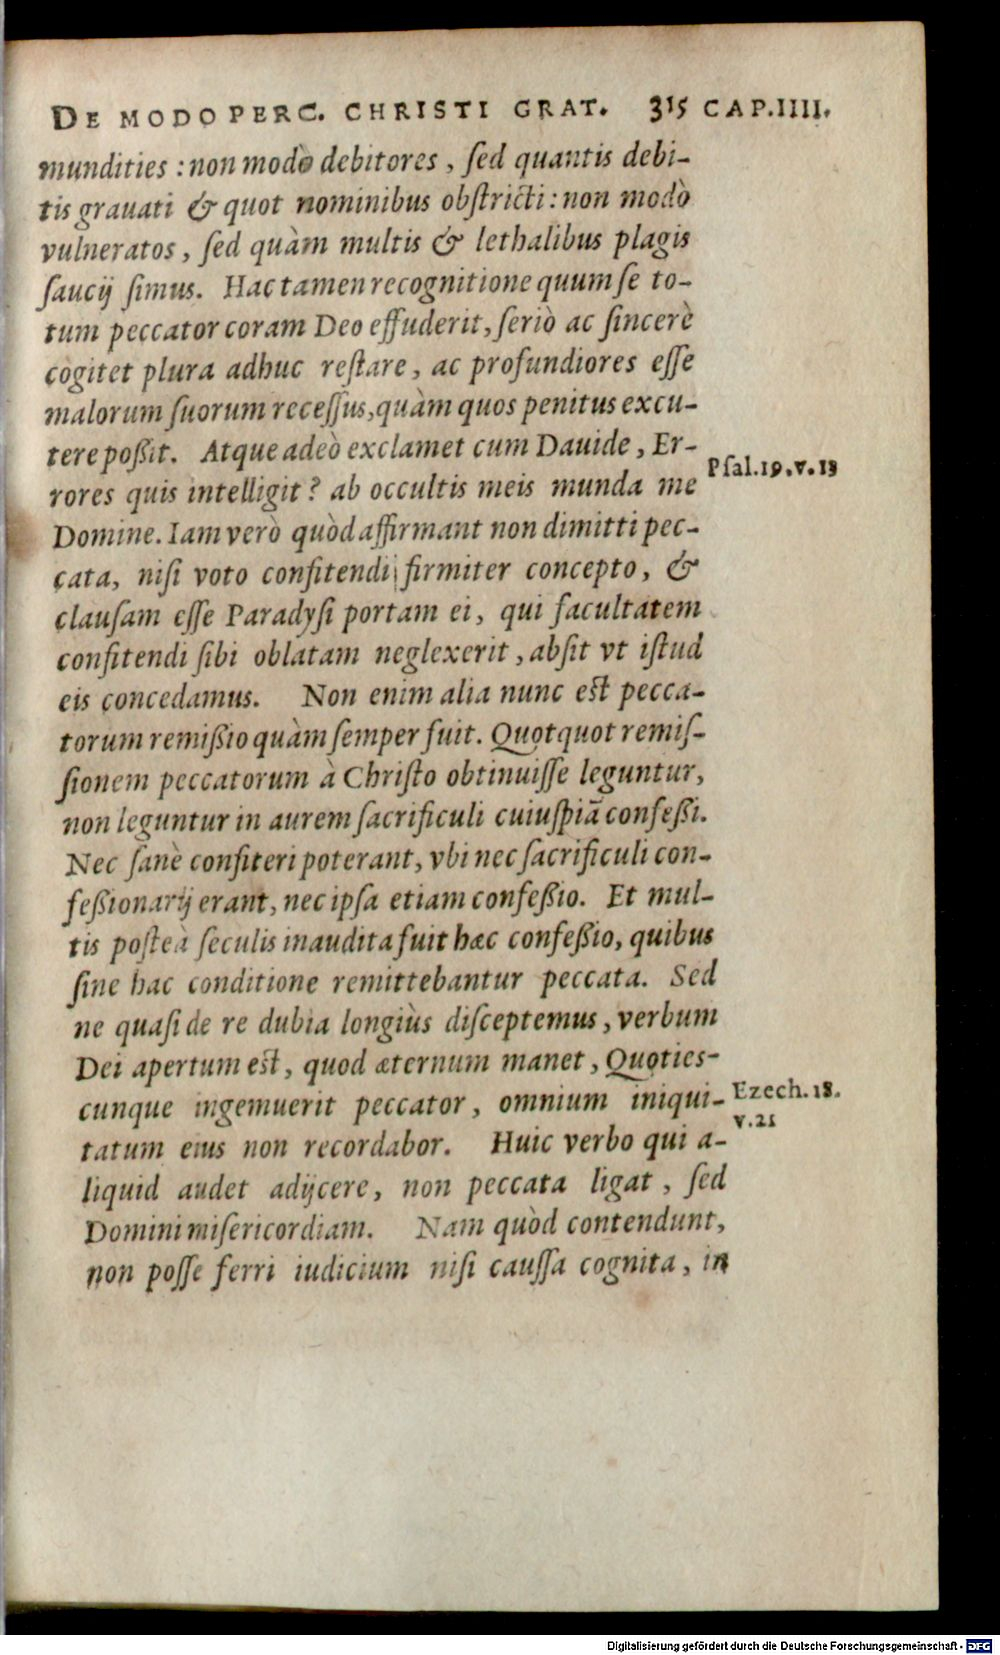 DE MODO PERC. CHRISTI GRAT. 315 CAP.IIII.
mundities : non modò debitores , ſed quantis debi-
tis grauati & quot nominibus obſtricti : non modò
vulneratos , ſed quàm multis & lethalibus plagis
ſaucij ſimus. Hac tamen recognitione quum ſe to-
tum peccator coram Deo effuderit, ſeriò ac ſincerè
cogitet plura adhuc reſtare , ac profundiores eſſe
malorum ſuorum receſſus, quàm quos penitus excu-
tere poßit. Atque adeò exclamet cum Dauide , Er-
Pſal.19.v.13
rores quis intelligit ? ab occultis meis munda me
Domine. Iam verò quòd affirmant non dimitti pec-
cata, niſi voto confitendi firmiter concepto , &
clauſam eſſe Paradyſi portam ei , qui facultatem
confitendi ſibi oblatam neglexerit , abſit vt iſtud
eis concedamus. Non enim alia nunc eſt pecca-
torum remißio quàm ſemper fuit. Quotquot remiſ-
ſionem peccatorum à Chriſto obtinuiſſe leguntur,
non leguntur in aurem ſacrificuli cuiuſpiã confeßi.
Nec ſanè confiteri poterant, vbi nec ſacrificuli con-
feßionarij erant, nec ipſa etiam confeßio. Et mul-
tis poſteà ſeculis inaudita fuit hæc confeßio, quibus
ſine hac conditione remittebantur peccata. Sed
ne quaſi de re dubia longiùs diſceptemus , verbum
Dei apertum eſt, quod æternum manet , Quoties-
cunque ingemuerit peccator , omnium iniqui-
Ezech.18.
v.21
tatum eius non recordabor. Huic verbo qui a-
liquid audet adijcere, non peccata ligat , ſed
Domini miſericordiam. Nam quòd contendunt,
non poſſe ferri iudicium niſi cauſſa cognita , in
Digitalisierung gefördert durch die Deutsche Forschungsgemeinschaft - DFG